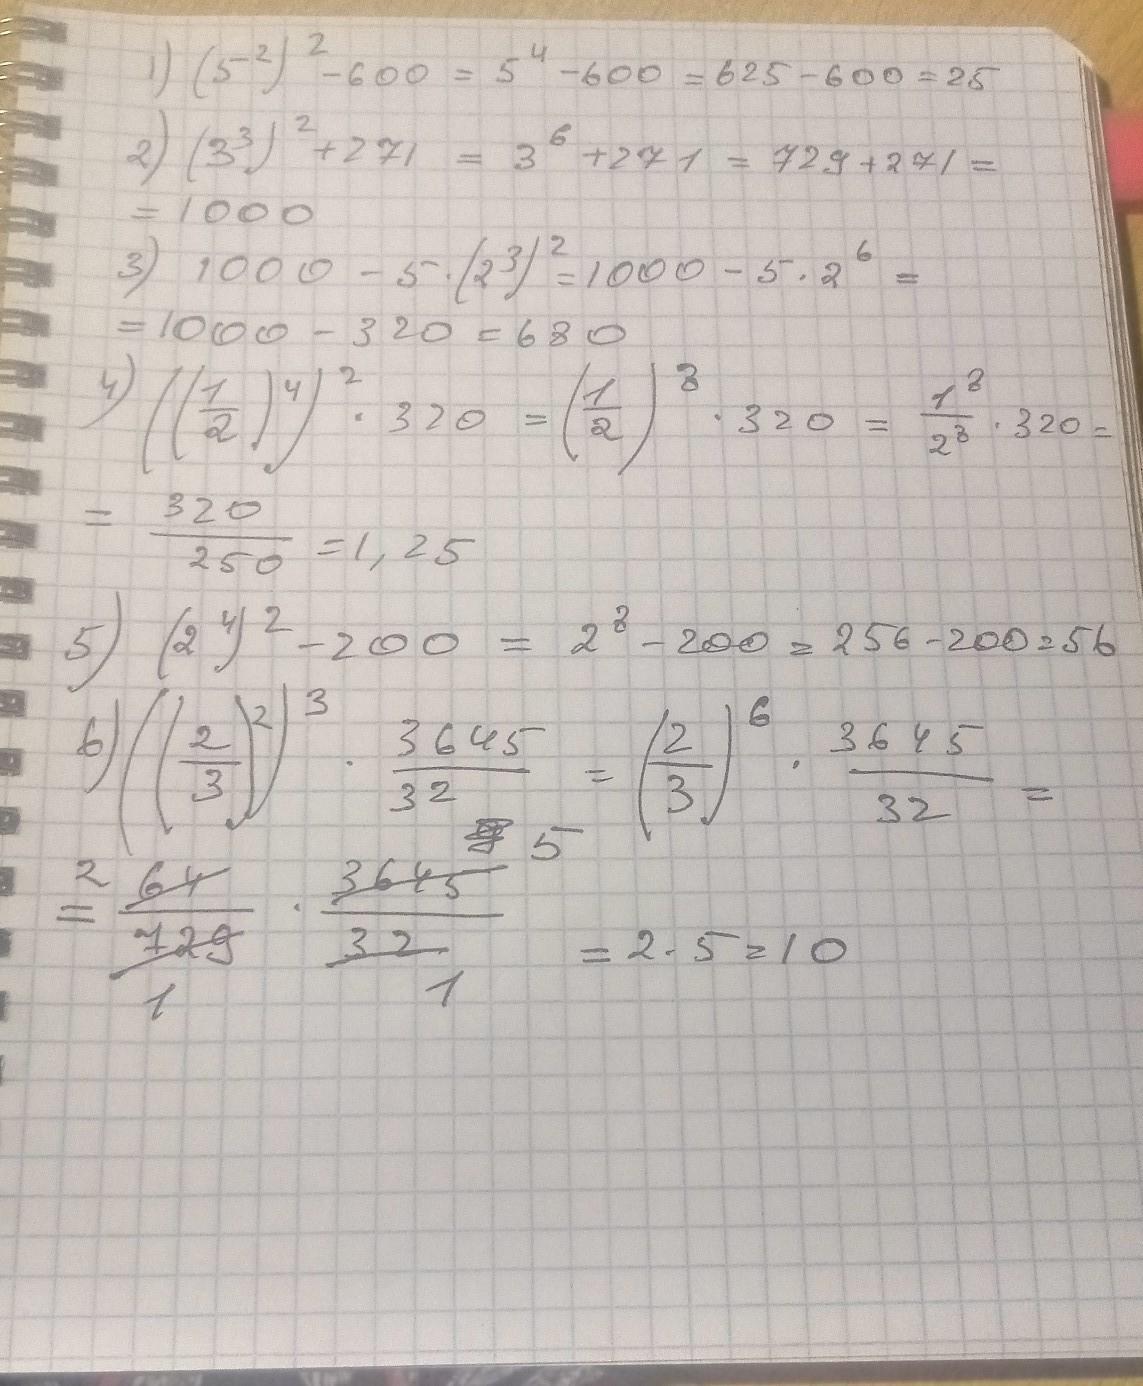 1) (5²)² - 600 = 5⁴ - 600 = 625 - 600 = 25
2) (3³)² + 271 = 3⁶ + 271 = 729 + 271 =
= 1000
3) 1000 - 5 · (2³)² = 1000 - 5 · 2⁶ =
= 1000 - 320 = 680
4) ((1/2)⁴)² · 320 = (1/2)⁸ · 320 = 1⁸/2⁸ · 320 =
= 320/250 = 1,25
5) (2⁴)² - 200 = 2⁸ - 200 = 256 - 200 = 56
6) ((2/3)²)³ · 3645/32 = (2/3)⁶ · 3645/32 =
5
= 2 64/729 · 3645/32 = 2 · 5 = 10
1 1